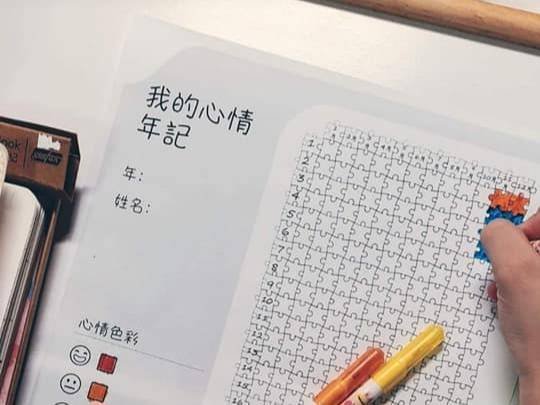 我的心情
年記
年：
姓名：
心情色彩
1
2
3
4
5
6
7
8
9
10
11
12
13
14
15